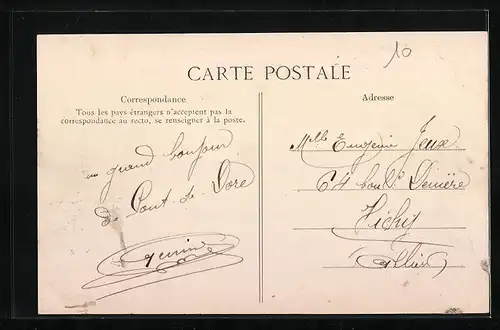 10
CARTE POSTALE
Correspondance
Tous les pays étrangers n'acceptent pas la
correspondance au recto, se renseigner à la poste.
un grand bonjour
de Pont-de-Dore
Adresse
Melle Eugénie
64 boul
Vichy
Allier